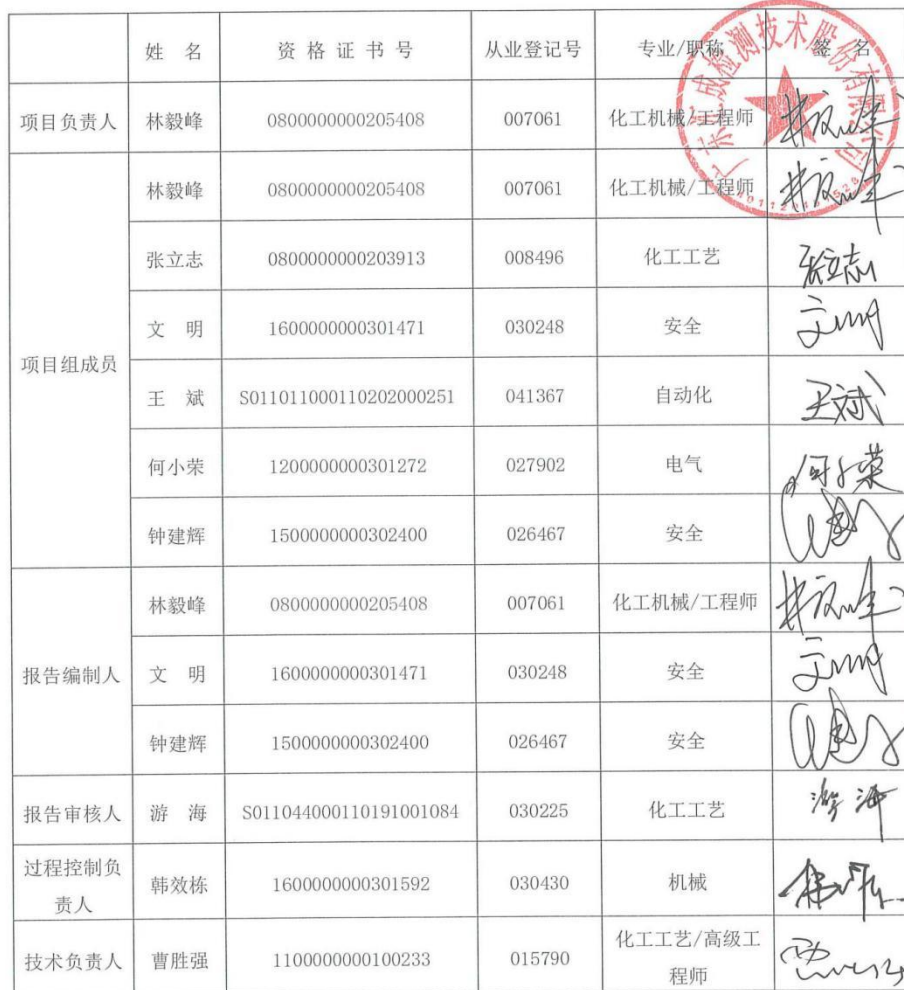 姓 名 资格证书号 从业登记号 专业/职称 签 名
项目负责人 林毅峰 0800000000205408 007061 化工机械/工程师
项目组成员 林毅峰 0800000000205408 007061 化工机械/工程师
张立志 0800000000203913 008496 化工工艺 张立志
文 明 1600000000301471 030248 安全 文明
王 斌 S011011000110202000251 041367 自动化 王斌
何小荣 1200000000301272 027902 电气 何小荣
钟建辉 1500000000302400 026467 安全
报告编制人 林毅峰 0800000000205408 007061 化工机械/工程师
文 明 1600000000301471 030248 安全 文明
钟建辉 1500000000302400 026467 安全
报告审核人 游 海 S011044000110191001084 030225 化工工艺 游海
过程控制负
责人 韩效栋 1600000000301592 030430 机械
技术负责人 曹胜强 1100000000100233 015790 化工工艺/高级工
程师